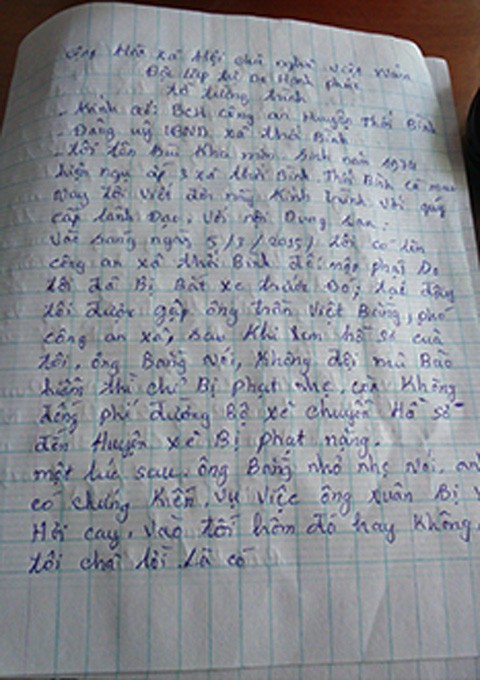 Cộng Hòa xã Hội chủ nghĩa việt Nam
Độc lập tự Do Hạnh phúc
tờ tường trình
- Kính gửi BCH công an Huyện Thới Bình
- Đảng uỷ UBND xã thới Bình
- tôi tên Bùi Kha min. sinh năm 1974
hiện ngụ ấp 3 xã thới Bình. Thới Bình cà mau
Nay tôi viết đơn này Kính trình với quý
cấp lãnh Đạo, với nội Dung sau:
vào sáng ngày 5/3/2015, tôi có lên
công an xã thới Bình để nộp phạt Do
tôi đã Bị Bắt xe trước Đó, tại đây
tôi được gặp ông trần việt Bằng, phó
công an xã, sau Khi xem hồ sơ của
tôi, ông Bằng Nói, Không đội mũ Bảo
hiểm thì chỉ Bị phạt nhẹ, còn Không
đóng phí đường Bộ xẽ chuyển Hồ sơ
đến Huyện xẽ Bị phạt nặng.
một lúc sau, ông Bằng nhỏ nhẹ Nói, an
có chứng Kiến vụ việc ông xuân Bị
Hơi cay, vào tối hôm đó hay Không,
tôi chả lời Là có